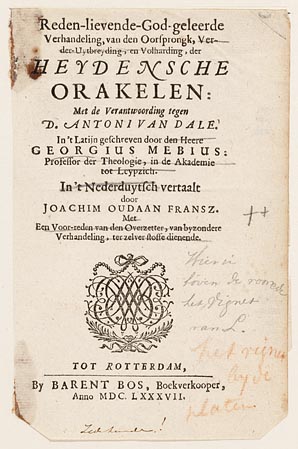 Reden-lievende-God-geleerde
Verhandeling, van den Oorsprongk, Ver-
der-Uytbreyding, en Volharding, der
HEYDENSCHE
ORAKELEN:
Met de Verantwoording tegen
D. ANTONI VAN DALE.
In 't Latijn geschreven door den Heere
GEORGIUS MEBIUS:
Professor der Theologie, in de Akademie
tot Leypzich.
In 't Nederduytsch vertaalt
door
JOACHIM OUDAAN FRANSZ.
Met
Een Voor-reden van den Overzetter, van byzondere
Verhandeling, ter zelver stoffe dienende.
++
Hier in
boven de
het Vignet
van L.
het vignet
by de
platen
TOT ROTTERDAM,
By BARENT BOS, Boekverkooper,
Anno MDC. LXXXVII.